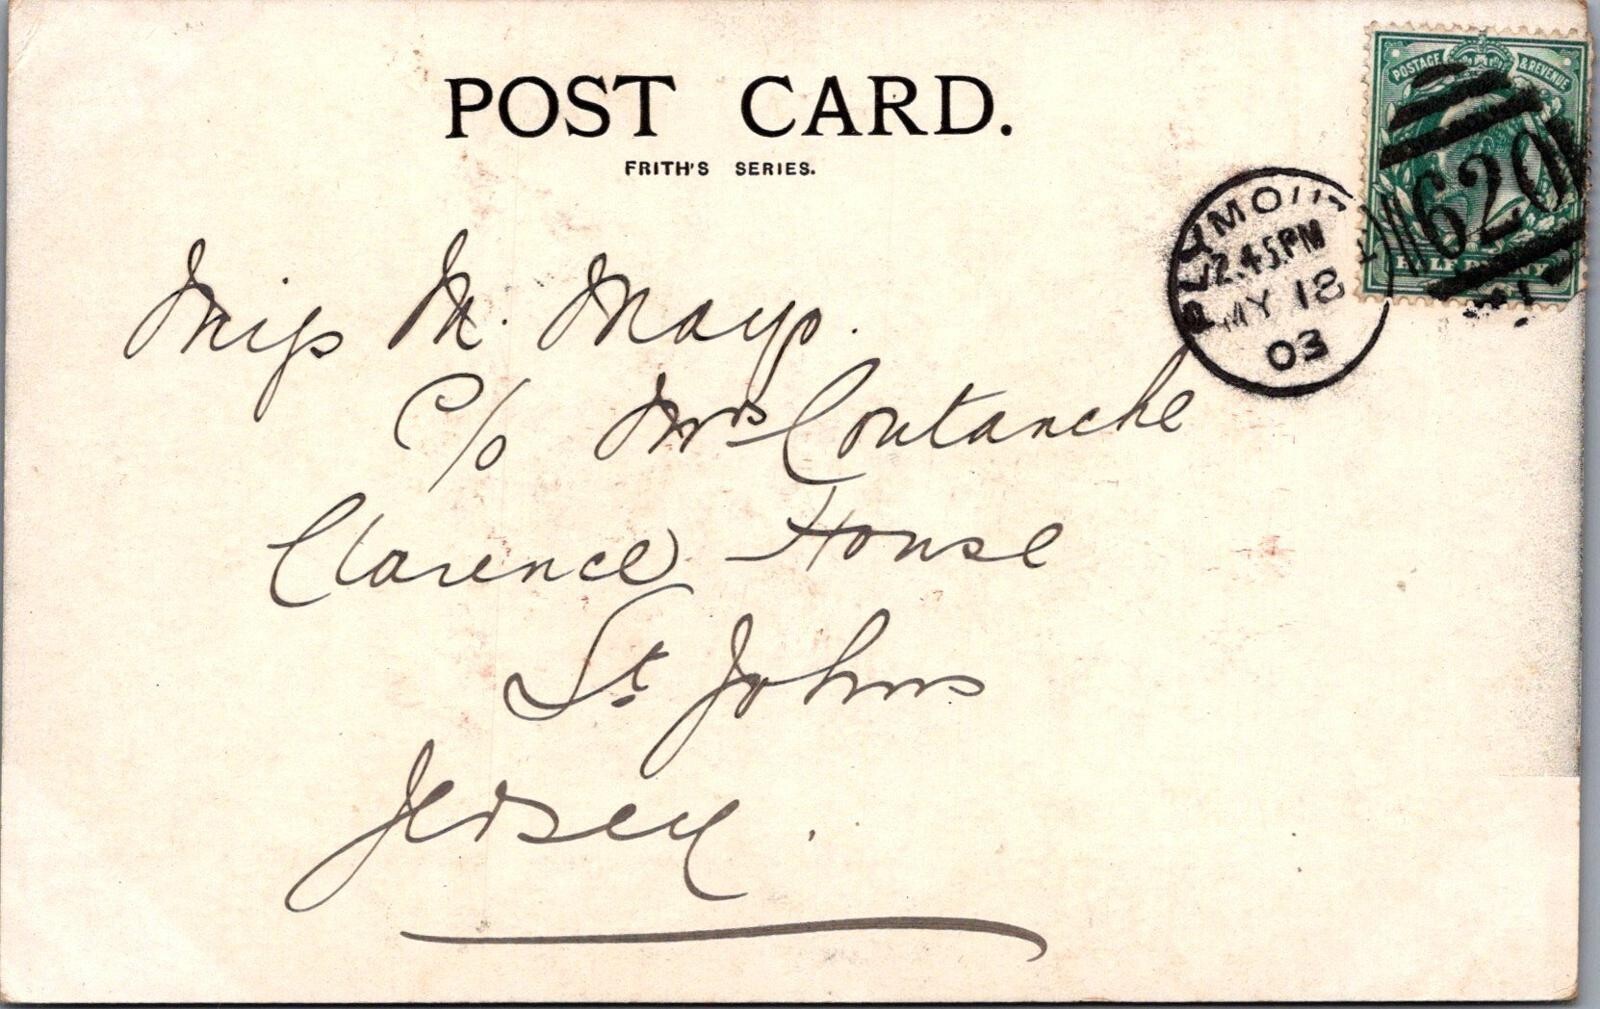 POST CARD.
FRITH'S SERIES.
POSTAGE & REVENUE
620
HALF PENNY
PLYMOUTH
2.45PM
MY 18
03
Miss M. Mayo.
c/o Mrs Coutanche
Clarence House
St Johns
Jersey.